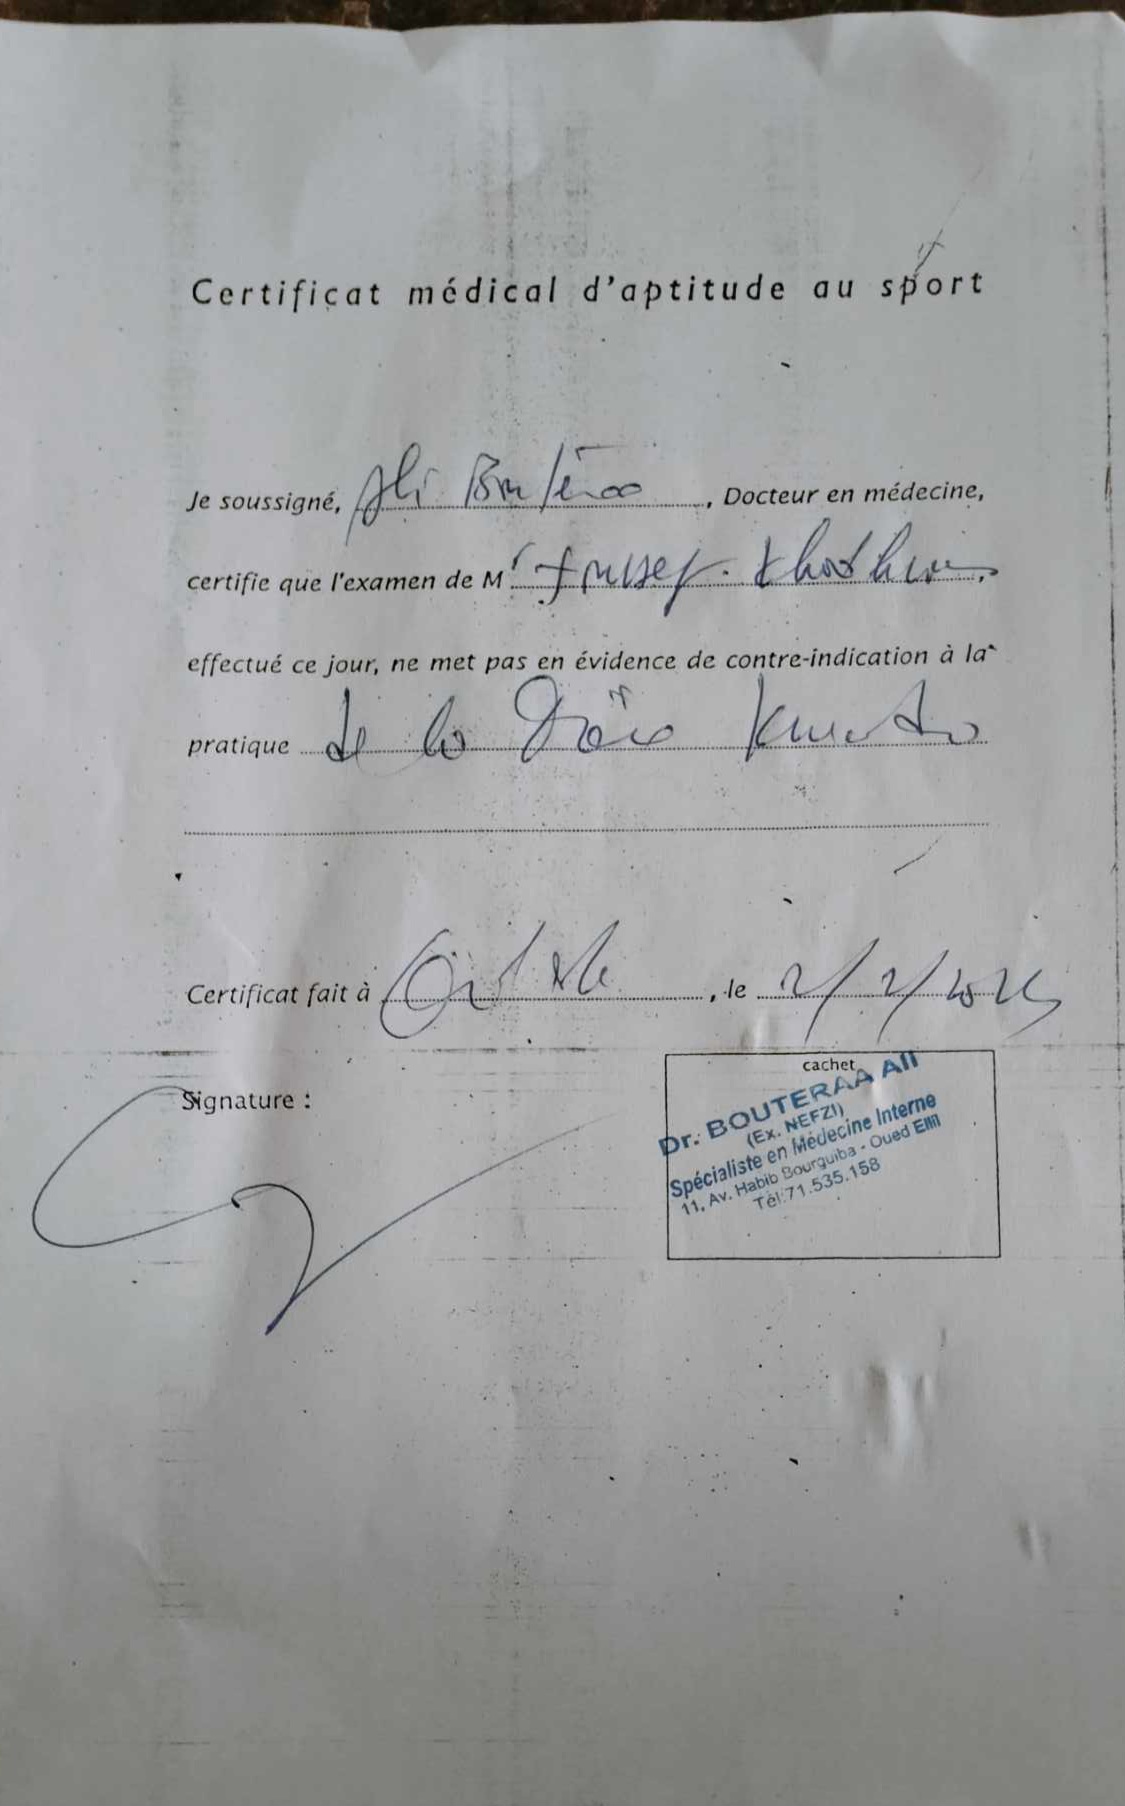 Certificat médical d'aptitude au sport
Je soussigné, Ali Bouteraa, Docteur en médecine,
certifie que l'examen de Mr Youssef
effectué ce jour, ne met pas en évidence de contre-indication à la
pratique de la
Certificat fait à , le 2/2/2025
cachet
Signature :
Dr. BOUTERAA Ali
(Ex. NEFZI)
Spécialiste en Médecine Interne
11, Av. Habib Bourguiba - Oued Ellil
Tél:71.535.158